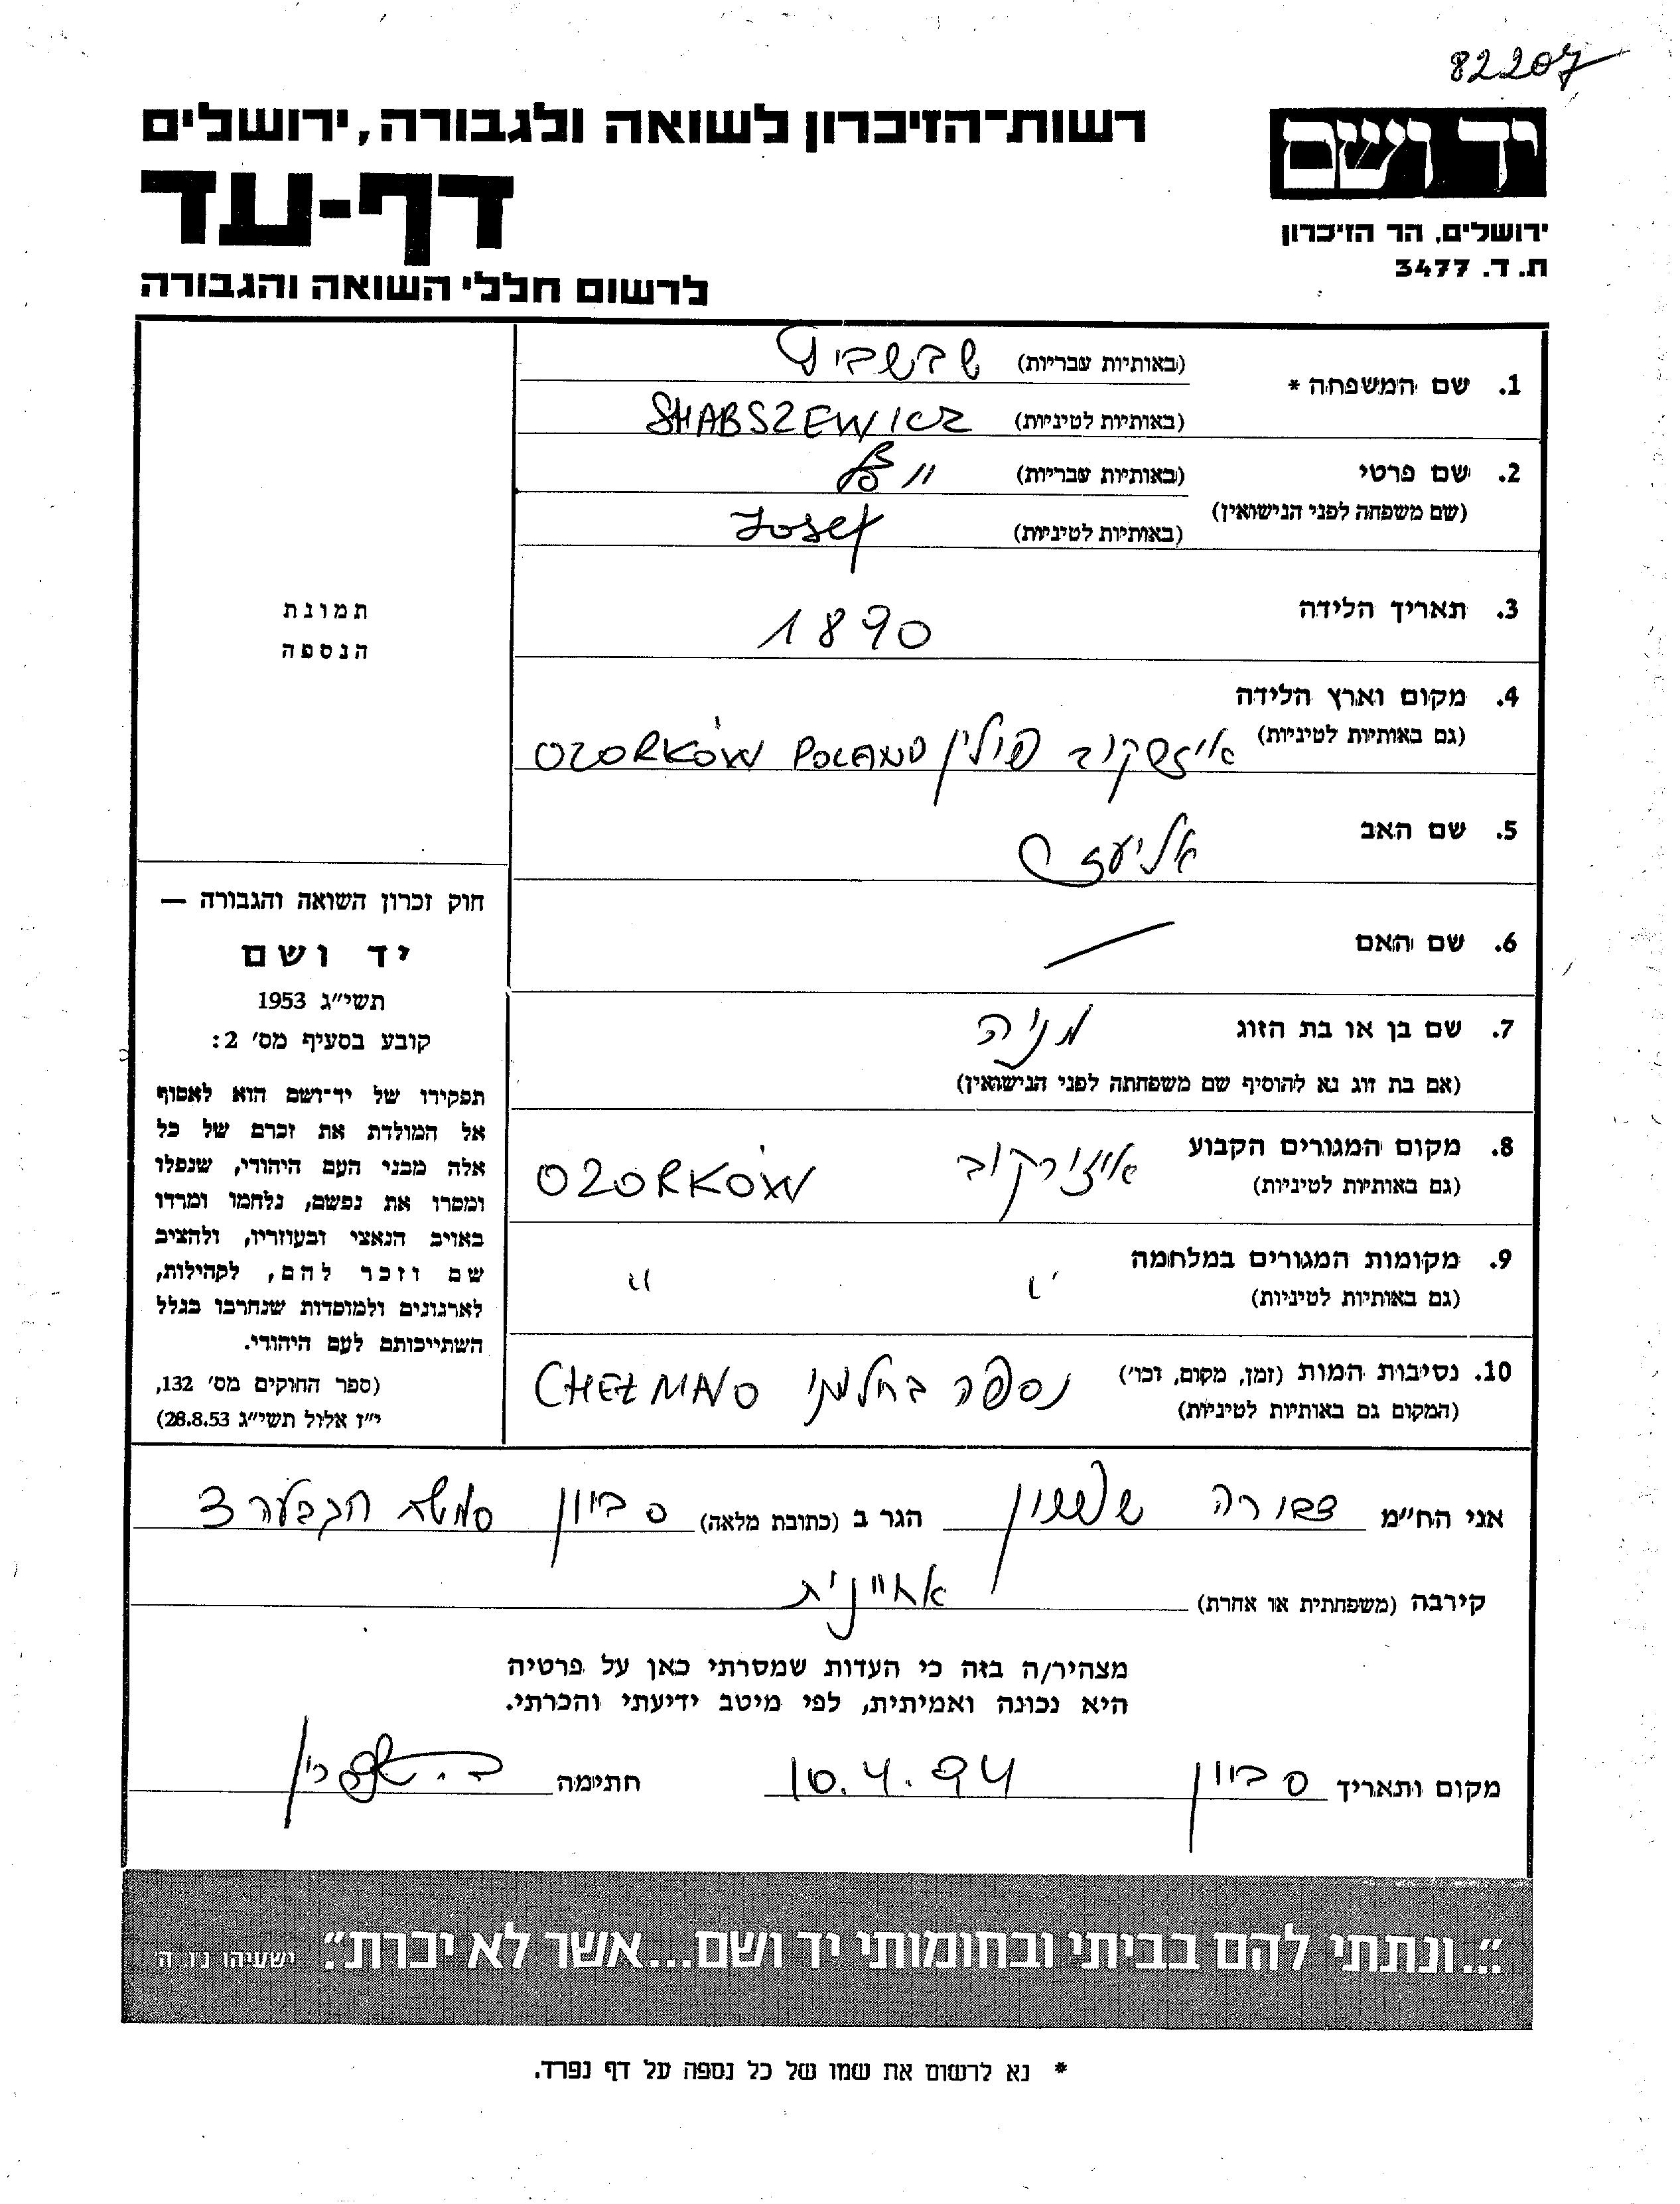 82207
יד ושם
ירושלים, הר הזיכרון
ת. ד. 3477
רשות־הזיכרון לשואה ולגבורה, ירושלים
דף-עד
לרשום חללי השואה והגבורה
1. שם המשפחה * (באותיות עבריות) שבשביץ
(באותיות לטיניות) SHABSZEWICZ
2. שם פרטי (באותיות עבריות)
(שם משפחה לפני הנישואין) (באותיות לטיניות) Josef
3. תאריך הלידה 1890
4. מקום וארץ הלידה
(גם באותיות לטיניות) פולין OZORKÓW POLAND
5. שם האב אליעזר
6. שם האם —
7. שם בן או בת הזוג מניה
(אם בת זוג נא להוסיף שם משפחתה לפני הנישואין)
8. מקום המגורים הקבוע אוזורקוב OZORKÓW
(גם באותיות לטיניות)
9. מקומות המגורים במלחמה " "
(גם באותיות לטיניות)
10. נסיבות המות (זמן, מקום, וכו') נספה בחלמנו CHEŁMNO
(המקום גם באותיות לטיניות)
תמונת
הנספה
חוק זכרון השואה והגבורה —
יד ושם
תשי"ג 1953
קובע בסעיף מס' 2:
תפקידו של יד־ושם הוא לאסוף
אל המולדת את זכרם של כל
אלה מבני העם היהודי, שנפלו
ומסרו את נפשם, נלחמו ומרדו
באויב הנאצי ובעוזריו, ולהציב
שם וזכר להם, לקהילות,
לארגונים ולמוסדות שנחרבו בגלל
השתייכותם לעם היהודי.
(ספר החוקים מס' 132,
י"ז אלול תשי"ג 28.8.53)
אני הח"מ דבורה ששון הגר ב (כתובת מלאה) סביון סמטת הגבעה 3
קירבה (משפחתית או אחרת) אחיינית
מצהיר/ה בזה כי העדות שמסרתי כאן על פרטיה
היא נכונה ואמיתית, לפי מיטב ידיעתי והכרתי.
מקום ותאריך סביון 10.4.94 חתימה
"...ונתתי להם בביתי ובחומותי יד ושם...אשר לא יכרת". ישעיהו נ"ו, ה'
* נא לרשום את שמו של כל נספה על דף נפרד.